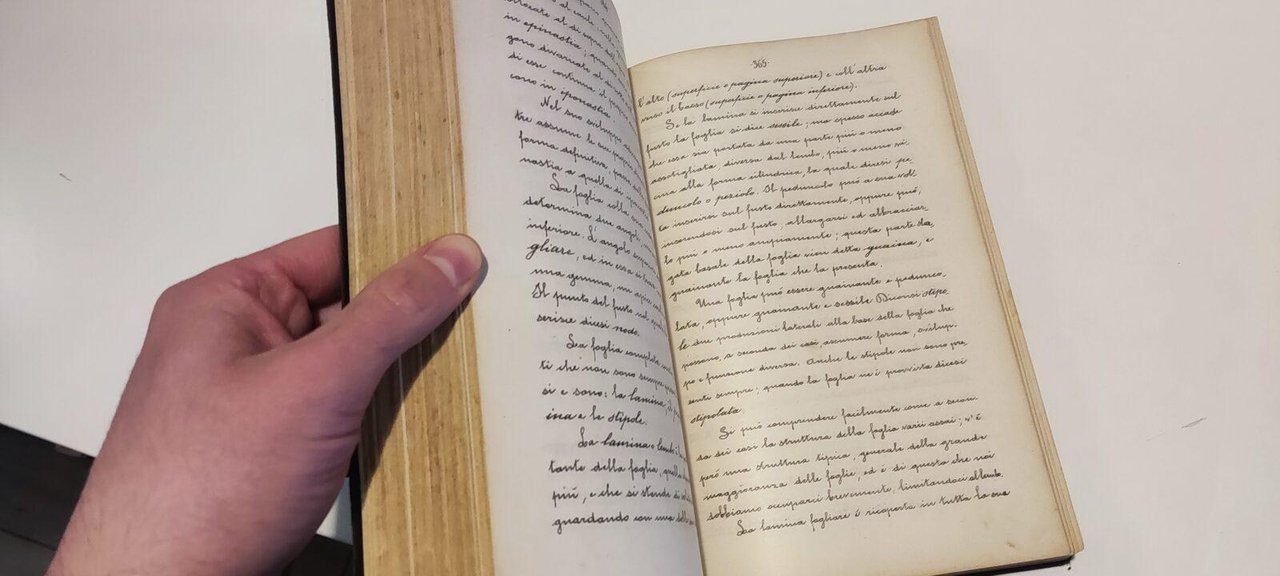 in epinastia; quando
gono divaricate al di
di esse continua il
cono in eponastia
Nel suo sviluppo
tre assume le sue proprie
forma definitiva, passa dalla
nastia a quella di
La foglia colla sua
determina due angoli,
inferiore. L'angolo superiore
gliare, ed in essa si trova
una gemma, un
Il punto del fusto nel quale
serisce dicesi nodo.
La foglia completa
ti che non sono sempre
si e sono: la lamina, il
ina e le stipole.
La lamina o lembo è la
tante della foglia, quella
più, e che si stende di solito
guardando con una delle
365.
l'alto (superficie o pagina superiore) e coll'altra
verso il basso (superficie o pagina inferiore).
Se la lamina si inserisce direttamente sul
fusto la foglia si dice sessile; ma spesso accade
che essa sia portata da una parte più o meno
assottigliata, diversa dal lembo, più o meno vi-
cina alla forma cilindrica, la quale dicesi pe-
duncolo o peziolo. Il peduncolo può a sua vol-
ta inserirsi sul fusto direttamente, oppure può,
inserendosi sul fusto, allargarsi ed abbracciar-
lo più o meno ampiamente; questa parte slar-
gata basale della foglia vien detta guaina, e
guainante la foglia che la presenta.
Una foglia può essere guainante e pedunco-
lata, oppure guainante e sessile. Diconsi stipo-
le due produzioni laterali alla base della foglia che
possono, a seconda dei casi, assumere forma, svilup-
po e funzione diversa. Anche le stipole non sono pre-
senti sempre; quando la foglia ne è provvista dicesi
stipolata.
Si può comprendere facilmente come a secon-
da dei casi la struttura della foglia varii assai; v'è
però una struttura tipica, generale della grande
maggioranza delle foglie, ed è di questa che noi
dobbiamo occuparci brevemente, limitandoci al lembo.
La lamina fogliare è ricoperta in tutta la sua